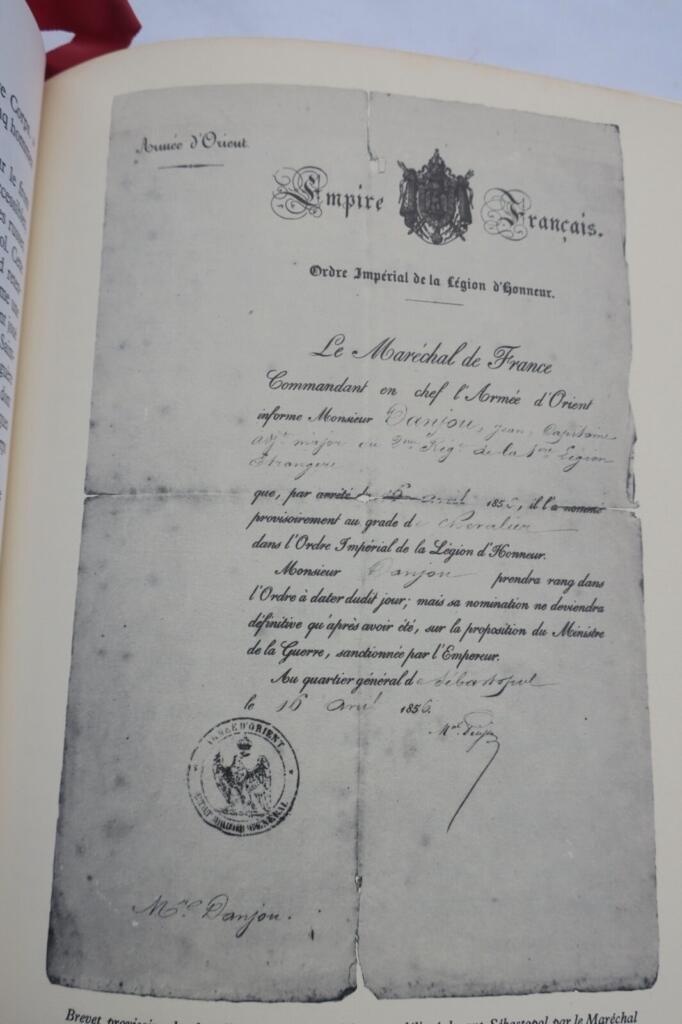 Armée d'Orient
Empire Français.
Ordre Impérial de la Légion d'Honneur.
Le Maréchal de France
Commandant en chef l'Armée d'Orient
informe Monsieur Danjou, Jean, Capitaine
adj.t major au 2me Rég.t de la 1ère Légion
Etrangère
que, par arrêté du 16 avril 1856, il l'a nommé
provisoirement au grade de Chevalier
dans l'Ordre Impérial de la Légion d'Honneur.
Monsieur Danjou prendra rang dans
l'Ordre à dater dudit jour; mais sa nomination ne deviendra
définitive qu'après avoir été, sur la proposition du Ministre
de la Guerre, sanctionnée par l'Empereur.
Au quartier général de Sébastopol
le 16 avril 1856.
ARMÉE D'ORIENT
ETAT MAJOR GÉNÉRAL
Danjou.
Sébastopol par le Maréchal